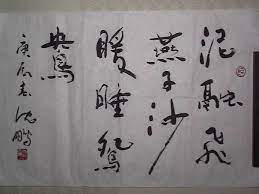 泥融飛
燕子沙
暖睡鴛
鴦
庚辰春沈鵬